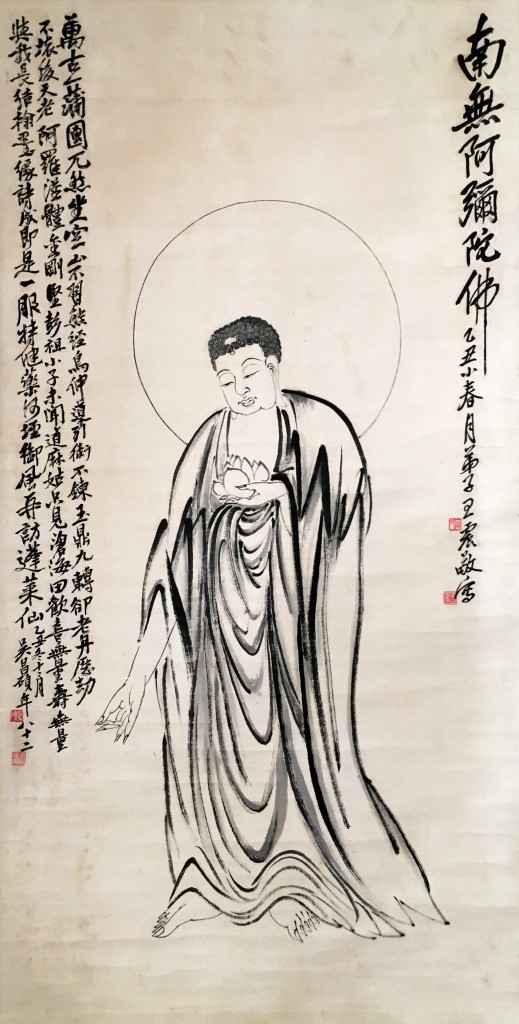 南無阿彌陀佛
乙丑小春月弟子王震敬寫
萬古一蒲團兀然坐空山不習熊經鳥伸導引術不鍊玉鼎九轉卻老丹歷劫
不壞後天老阿羅漢體金剛堅彭祖小子未聞道麻姑只見滄海田歡喜無量壽無量
與我長結翰墨緣詩成即是一服特健藥何御風再訪蓬萊仙
乙丑冬十月吳昌碩年八十二